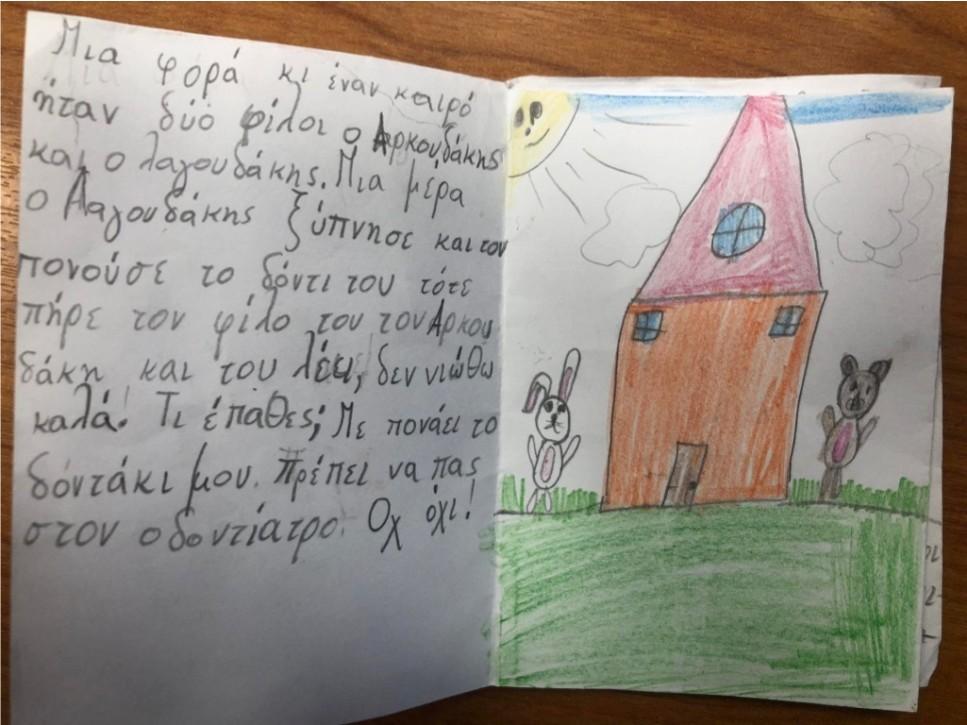 Μια φορά κι έναν καιρό
ήταν δύο φίλοι ο Αρκουδάκης
και ο λαγουδάκης. Μια μέρα
ο Λαγουδάκης ξύπνησε και τον
πονούσε το δόντι του τότε
πήρε τον φίλο του τον Αρκου
δάκη και του λέει, δεν νιώθω
καλά! Τι έπαθες; Με πονάει το
δοντάκι μου. Πρέπει να πας
στον οδοντίατρο. Οχ όχι!